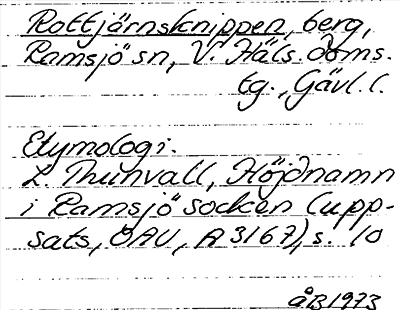 Rottjärnsknippen, berg,
Ramsjö sn, V. Häls. doms.
tg., Gävl. l.
Etymologi.
L. Thunvall, Höjdnamn
i Ramsjö socken (upp-
sats, OAU, A 3167), s. 10
åB 1973